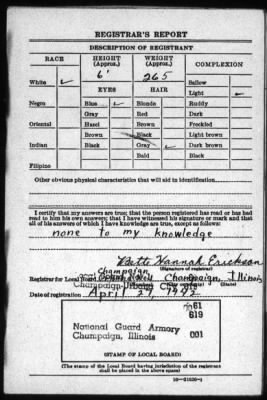 REGISTRAR'S REPORT
DESCRIPTION OF REGISTRANT
RACE HEIGHT (Approx.) WEIGHT (Approx.) COMPLEXION
6' 265
White ✓ EYES HAIR Sallow
Light ✓
Negro Blue ✓ Blonde Ruddy
Gray Red Dark
Oriental Hazel Brown Freckled
Brown Black Light brown
Indian Black Gray ✓ Dark brown
Bald Black
Filipino
Other obvious physical characteristics that will aid in identification
I certify that my answers are true; that the person registered has read or has had
read to him his own answers; that I have witnessed his signature or mark and that
all of his answers of which I have knowledge are true, except as follows:
none to my knowledge
Hannah Erickson
(Signature of registrar)
Champaign
Registrar for Local Board Champaign, Illinois
(Number) (City or county) (State)
Date of registration April 27, 1942
61
619
National Guard Armory 001
Champaign, Illinois
(STAMP OF LOCAL BOARD)
(The stamp of the Local Board having jurisdiction of the registrant
shall be placed in the above space)